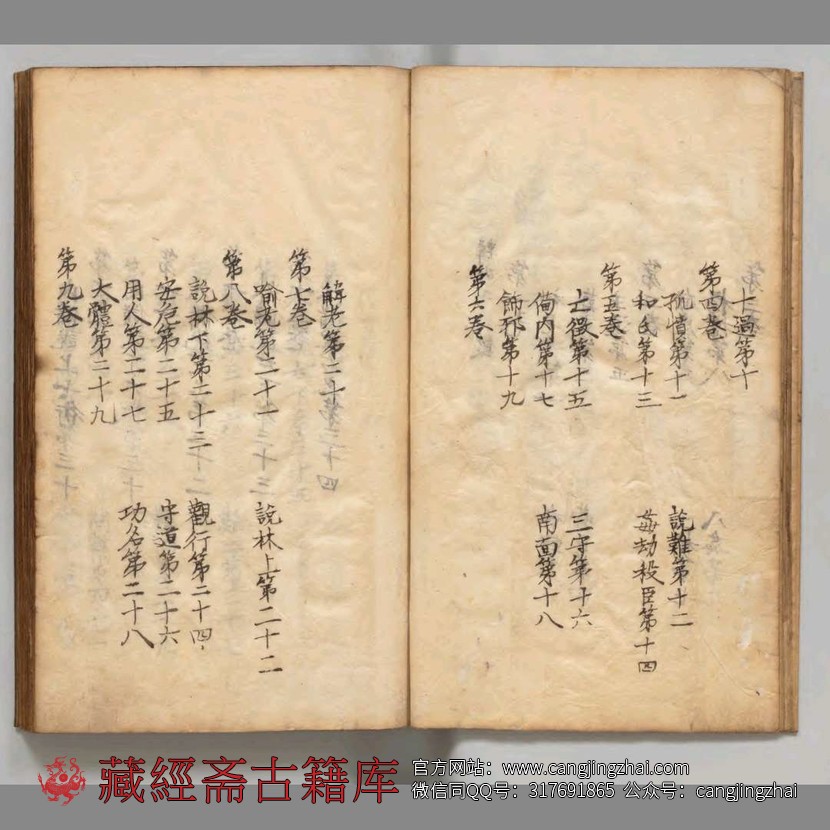 十過第十
第四卷
孤憤第十一 說難第十二
和氏第十三 姦劫殺臣第十四
第五卷
亡徵第十五 三守第十六
備内第十七 南面第十八
飾邪第十九
第六卷
解老第二十
第七卷
喻老第二十一 說林上第二十二
第八卷
說林下第二十三 觀行第二十四
安危第二十五 守道第二十六
用人第二十七 功名第二十八
大體第二十九
第九卷
藏經斋古籍库
官方网站：www.cangjingzhai.com
微信同QQ号：317691865 公众号：cangjingzhai